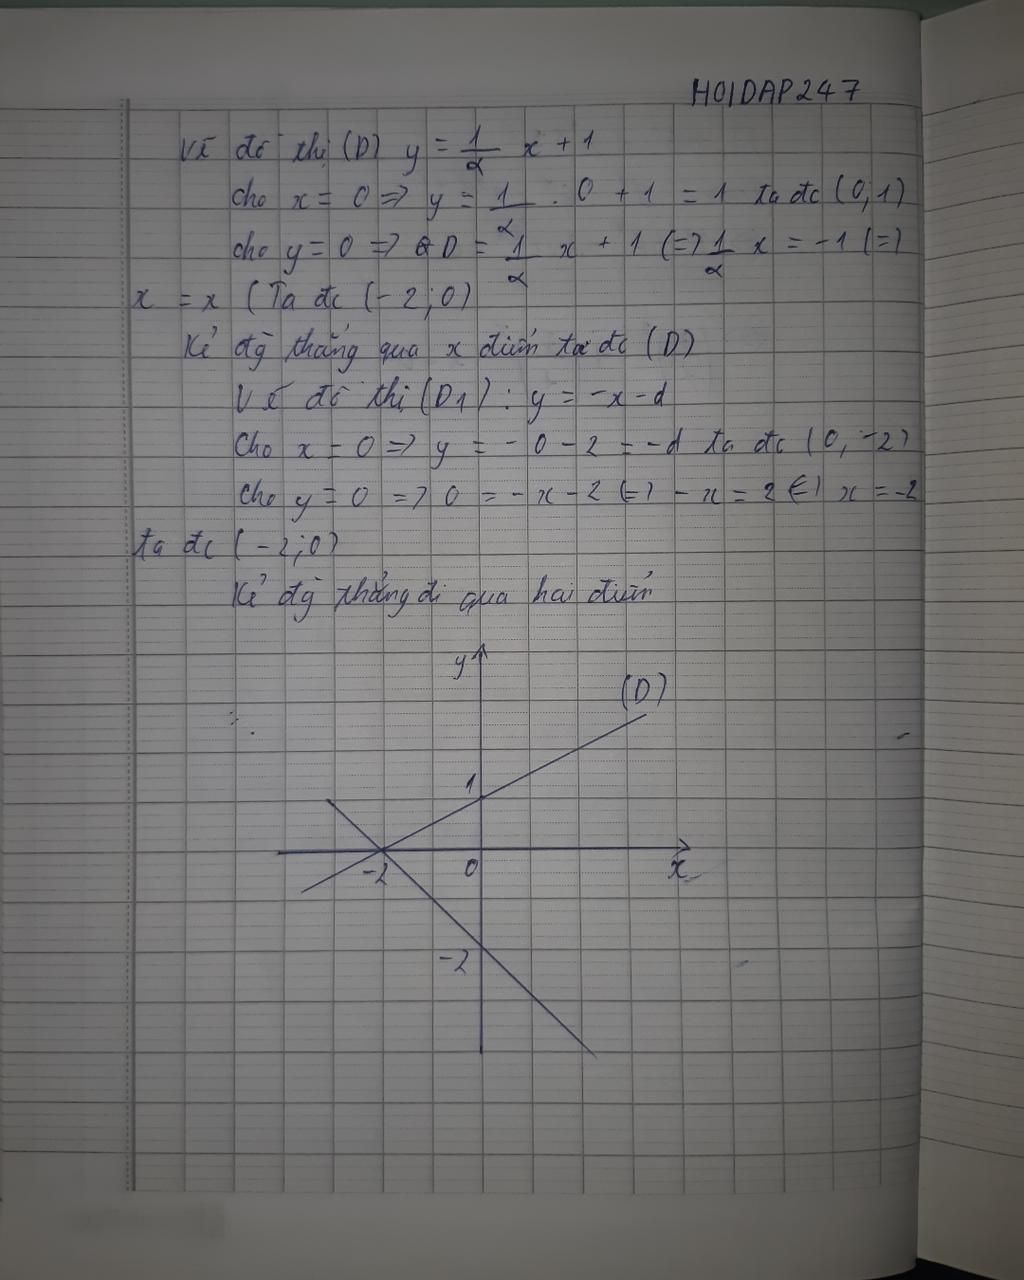 HOIDAP247
Vẽ đồ thị (D) y = 1/2 x + 1
Cho x = 0 => y = 1/2 . 0 + 1 = 1 ta đc (0,1)
cho y = 0 => 0 = 1/2 x + 1 (=> 1/2 x = -1 (=)
x = x (Ta đc (-2;0)
Kẻ đg thẳng qua x điểm ta đc (D)
Vẽ đồ thị (D1) : y = -x - d
Cho x = 0 => y = - 0 - 2 = -d ta đc (0,-2)
Cho y = 0 => 0 = -x - 2 (=) - x = 2 (=) x = -2
ta đc (-2;0)
Kẻ đg thẳng đi qua hai điểm
y
(D)
1
-2
0
x
-2